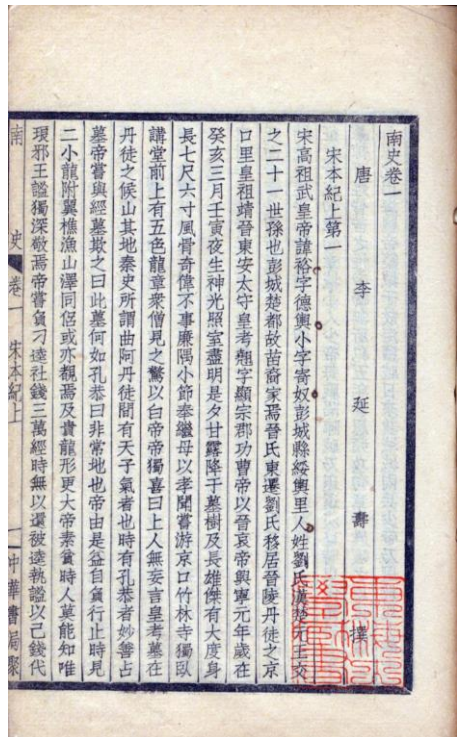 南史卷一
唐 李 延 壽 撰
宋本紀上第一
宋高祖武皇帝諱裕字德輿小字寄奴彭城縣綏輿里人姓劉氏漢楚元王交
之二十一世孫也彭城楚都故苗裔家焉晉氏東遷劉氏移居晉陵丹徒之京
口里皇祖靖晉東安太守皇考翹字顯宗郡功曹帝以晉哀帝興寧元年歲在
癸亥三月壬寅夜生神光照室盡明是夕甘露降于墓樹及長雄傑有大度身
長七尺六寸風骨奇偉不事廉隅小節奉繼母以孝聞嘗游京口竹林寺獨臥
講堂前上有五色龍章衆僧見之驚以白帝帝獨喜曰上人無妄言皇考墓在
丹徒之候山其地秦史所謂曲阿丹徒間有天子氣者也時有孔恭者妙善占
墓帝嘗與經墓欺之曰此墓何如孔恭曰非常地也帝由是益自負行止時見
二小龍附翼樵漁山澤同侶或亦覩焉及貴龍形更大帝素貧時人莫能知唯
琅邪王謐獨深敬焉帝嘗負刁逵社錢三萬經時無以還被逵執謐以己錢代
南 史 卷一 宋本紀上
中華書局聚